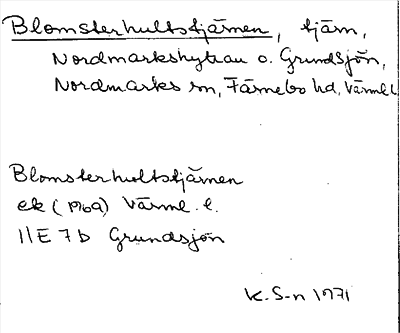 Blomsterhultstjärnen, tjärn,
Nordmarkshyttan o. Grundsjön,
Nordmarks sn, Färnebo hd, Värml. l.
Blomsterhultstjärnen
ek (1969) Värml. l.
11E 7b Grundsjön
K. S-n 1971